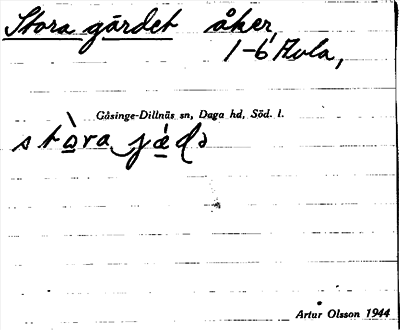 Stora gärdet åker,
1-6 Hvla,
Gåsinge-Dillnäs sn, Daga hd, Söd. l.
stòra jǽdə
Artur Olsson 1944